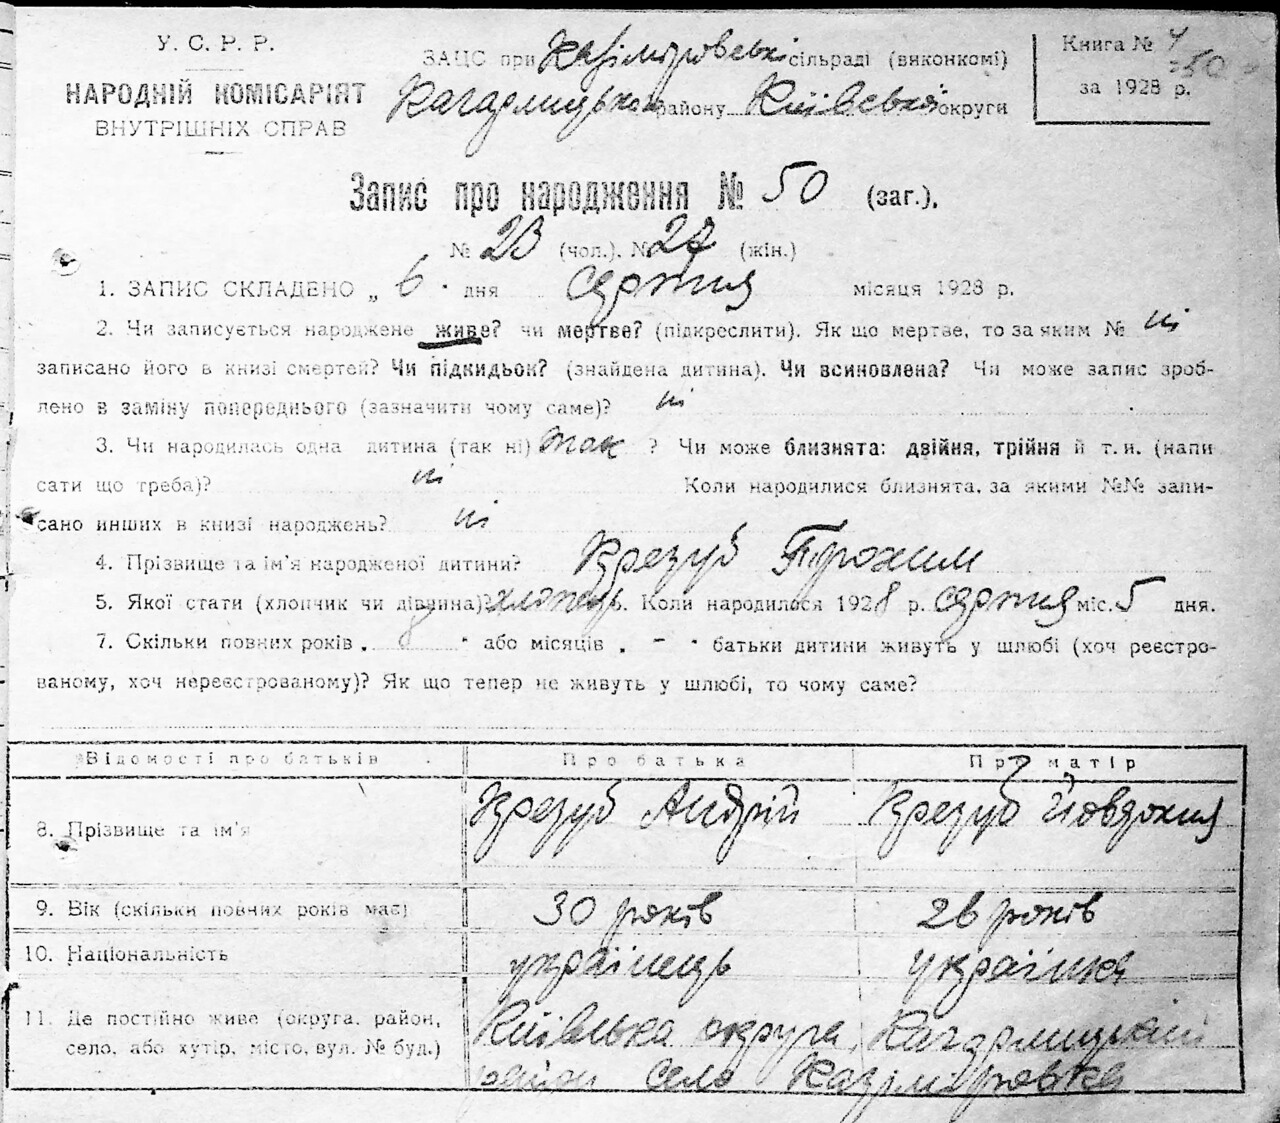 У. С. Р. Р.
НАРОДНІЙ КОМІСАРІЯТ
ВНУТРІШНІХ СПРАВ
ЗАЦС при Казіміровські сільраді (виконкомі)
Кагарлицького району Київської округи
Книга № 4
50
за 1928 р.
Запис про народження № 50 (заг.),
№ 23 (чол.). № 27 (жін.)
1. ЗАПИС СКЛАДЕНО „ 6 · дня серпня місяця 1928 р.
2. Чи записується народжене живе? чи мертве? (підкреслити). Як що мертве, то за яким № ні
записано його в книзі смертей? Чи підкидьок? (знайдена дитина). Чи всиновлена? Чи може запис зроб-
лено в заміну попереднього (зазначити чому саме)? ні
3. Чи народилась одна дитина (так ні) так ? Чи може близнята: двійня, трійня й т. и. (напи
сати що треба)? ні Коли народилися близнята, за якими №№ запи-
сано инших в книзі народжень? ні
4. Прізвище та ім'я народженої дитини? Крезуб Прохим
5. Якої стати (хлопчик чи дівчина)? хлопець. Коли народилося 1928 р. серпня міс. 5 дня.
7. Скільки повних років . 8 · або місяців . - · батьки дитини живуть у шлюбі (хоч реєстро-
ваному, хоч нереєстрованому)? Як що тепер не живуть у шлюбі, то чому саме?
Відомості про батьків Про батька Про матір
8. Прізвище та ім'я Крезуб Андрій Крезуб Йовдокия
9. Вік (скільки повних років має) 30 років 26 років
10. Національність українець українка
11. Де постійно живе (округа, район, Київська округа, Кагарлицький
село, або хутір, місто, вул. № буд.) район село Казіміровка